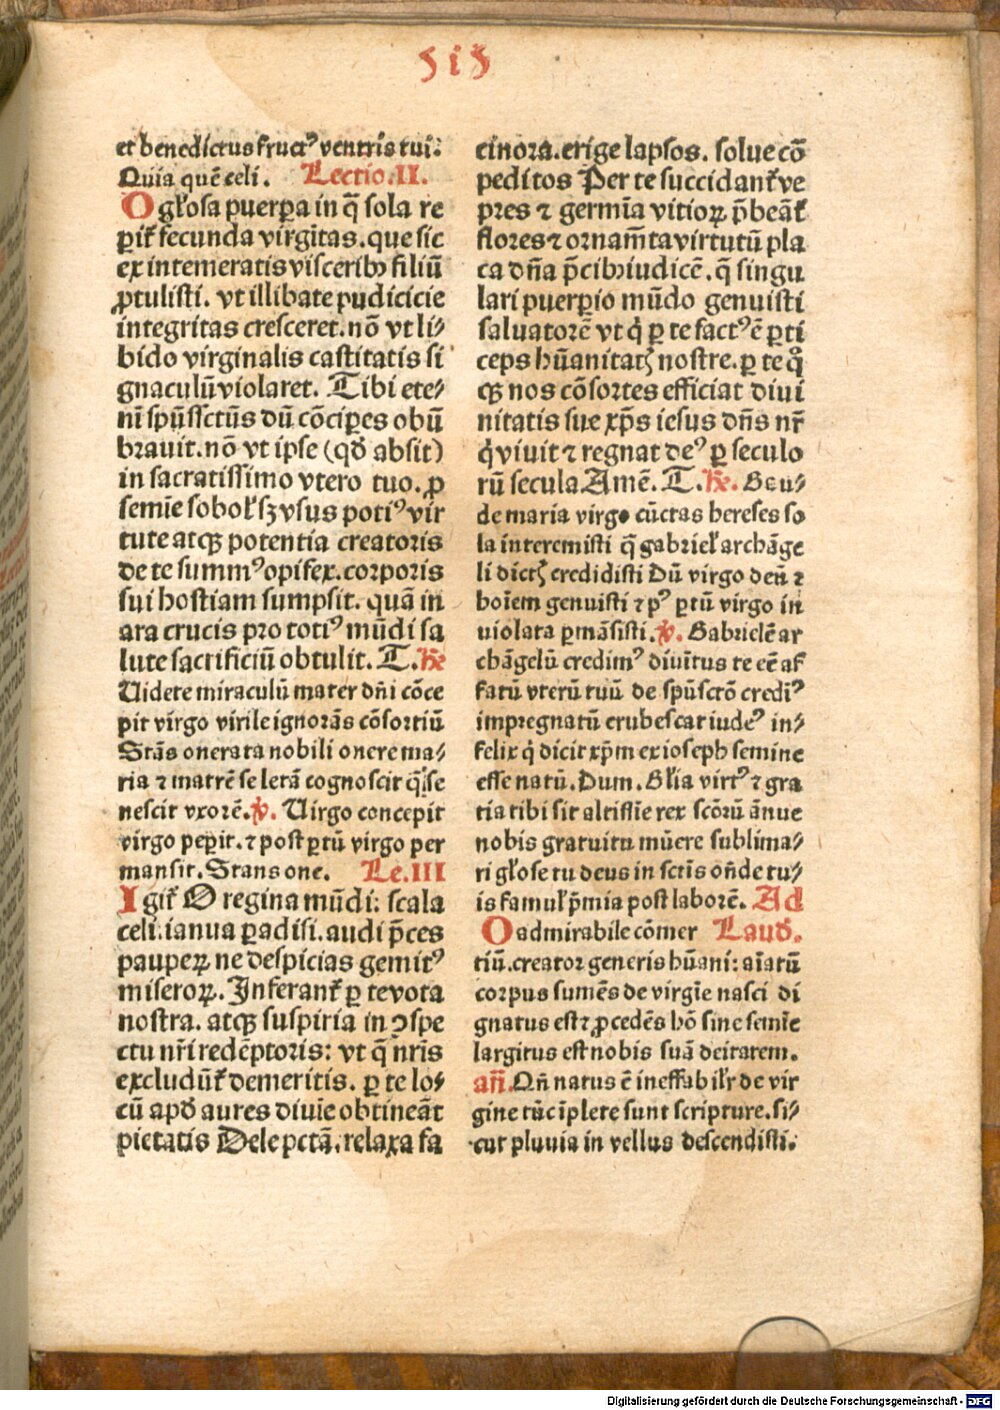 515
et benedictus fructꝰ ventris tui:
Quia quē celi. Lectio.II.
O gl'osa puerꝑa in q̄ sola re
ꝑit̄ fecunda virgītas.que sic
ex intemeratis visceribꝫ filiū
ꝓtulisti. vt illibate pudicicie
integritas cresceret.nō vt li⸗
bido virginalis castitatis si
gnaculū violaret. Tibi ete⸗
nī spūssctūs dū cōcipēs obū
bravit.nō vt ipse (qd̄ absit)
in sacratissimo vtero tuo.ꝓ
semīe sobol'sꝫ vsus potiꝰ vir
tute atqꝫ potentia creatoris
de te summꝰ opifex.corporis
sui hostiam sumpsit. quā in
ara crucis pro totiꝰ mūdi sa
lute sacrificiū obtulit. T. R̄e
Uidete miraculū mater dn̄i cōce
pit virgo virile ignorās cōsortiū
Stās onerata nobili onere ma⸗
ria ⁊ matrē se letā cognoscit q̄ se
nescit vxorē. ℣. Uirgo concepit
virgo peꝑit.⁊ post ꝑtū virgo per
mansit. Stans one. Le.III
I git̄ O regina mūdi: scala
celi.ianua ꝑadisi.audi p̄ces
pauperꝝ ne despicias gemitꝰ
miseroꝝ. Inferant̄ ꝑ te vota
nostra. atqꝫ suspiria in ꝯspe
ctu nr̄i redēptoris: vt q̄ nr̄is
excludūt̄ demeritis. ꝑ te lo⸗
cū apd̄ aures diuīe obtineāt
pietatis Dele pctā.relaxa fa
cinora.erige lapsos. solue cō
peditos Per te succidant̄ ve
pres ⁊ germīa vitioꝝ p̄beāt̄
flores ⁊ ornam̄ta virtutū pla
ca dn̄a p̄cibꝫ iudicē.q̄ singu
lari puerꝑio mūdo genuisti
saluatorē vt q̇ ꝑ te factꝰ ē ꝑti
ceps hūanitatꝭ nostre.ꝑ te qͦ
qꝫ nos cōsortes efficiat diui
nitatis sue xp̄s iesus dn̄s nr̄
q̇ viuit ⁊ regnat deꝰ ꝑ seculo
rū secula Amē. T. R̄e. Gau⸗
de maria virgo cūctas hereses so
la interemisti q̄ gabriel' archāge
li dictꝭ credidisti Dū virgo deū ⁊
hoīem genuisti ⁊ pꝰ ꝑtū virgo in
uiolata ꝑmāsisti. ℣. Gabrielē ar
chāgelū credimꝰ diuītus te eē af
fatū vterū tuū de spūsctō credīꝰ
impregnatū erubescat iudeꝰ in⸗
felix q̇ dicit xp̄m ex ioseph semine
esse natū. Dum. Gl'ia virtꝰ ⁊ gra
tia tibi sit altissīe rex scōrū ānue
nobis gratuitu mūere sublima⸗
ri gl'ose tu deus in sctīs on̄de tu⸗
is famul' p̄mia post laborē. Ad
O admirabile cōmer Laud̄.
tiū.creator generis hūani: aīatū
corpus sumēs de virgīe nasci di
gnatus est ⁊ ꝓcedēs hō sine semīe
largitus est nobis suā deitatem.
an̄. Qn̄ natus ē ineffabilr̄ de vir
gine tūc īplete sunt scripture.si⸗
cut pluuia in vellus descendisti.
Digitalisierung gefördert durch die Deutsche Forschungsgemeinschaft - DFG